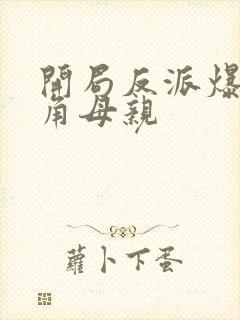 開局反派爆
角母親
蘿卜下蛋